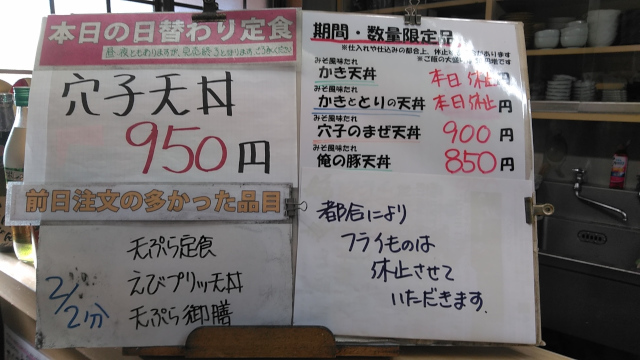 本日の日替わり定食
昼・夜ともありますが、完売終了となります。ご了承ください
穴子天丼
950円
前日注文の多かった品目
2/2分
天ぷら定食
えびプリッ天丼
天ぷら御膳
期間・数量限定品
※仕入れや仕込みの都合上、休止
があります
※ご飯の大盛
円増です
みそ風味たれ
かき天丼 本日休止円
みそ風味たれ
かきととりの天丼 本日休止円
みそ風味たれ
穴子のまぜ天丼 900円
みそ風味たれ
俺の豚天丼 850円
都合により
フライものは
休止させて
いただきます.